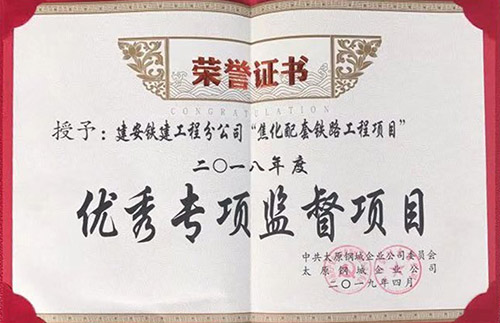 荣誉证书
CONGRATULATION
授予：建安铁建工程分公司“焦化配套铁路工程项目”
二〇一八年度
优秀专项监督项目
中共太原钢城企业公司委员会
太原钢城企业公司
二〇一九年四月